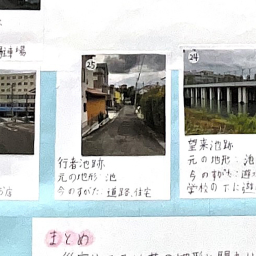 駐車場
25
行者池跡
元の地形:池
今のすがた:道路、住宅
24
望来池跡
元の地形:池
今のすがた:遊
学校の下に遊
店
まとめ